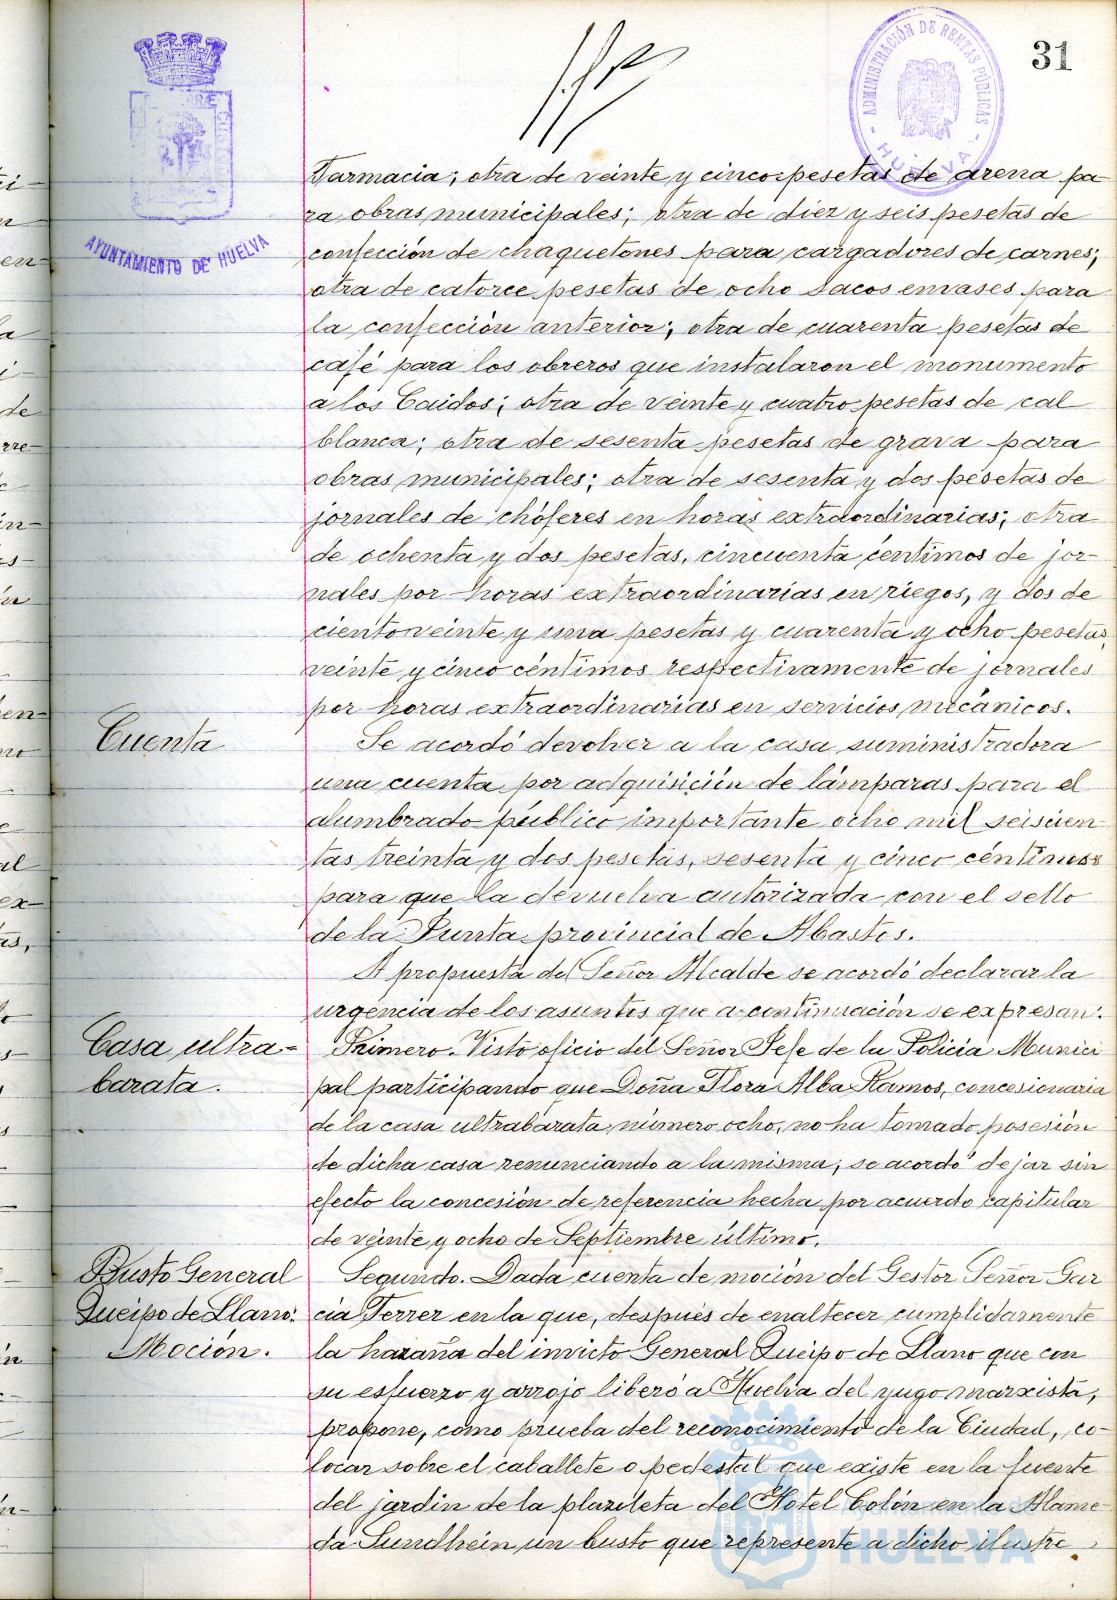 31
ADMINISTRACIÓN DE RENTAS PÚBLICAS
HUELVA
AYUNTAMIENTO DE HUELVA
Farmacia; otra de veinte y cinco pesetas de arena pa-
ra obras municipales; otra de diez y seis pesetas de
confección de chaquetones para cargadores de carnes;
otra de catorce pesetas de ocho sacos envases para
la confección anterior; otra de cuarenta pesetas de
café para los obreros que instalaron el monumento
a los Caidos; otra de veinte y cuatro pesetas de cal
blanca; otra de sesenta pesetas de grava para
obras municipales; otra de sesenta y dos pesetas de
jornales de chóferes en horas extraordinarias; otra
de ochenta y dos pesetas, cincuenta céntimos de jor-
nales por horas extraordinarias en riegos, y dos de
ciento veinte y una pesetas y cuarenta y ocho pesetas,
veinte y cinco céntimos respectivamente de jornales
por horas extraordinarias en servicios mecánicos.
Cuenta
Se acordó devolver a la casa suministradora
una cuenta por adquisición de lámparas para el
alumbrado público importante ocho mil seiscien
tas treinta y dos pesetas, sesenta y cinco céntimos
para que la devuelva autorizada con el sello
de la Junta provincial de Abastos.
A propuesta del Señor Alcalde se acordó declarar la
urgencia de los asuntos que a continuación se expresan:
Casa ultra-
barata.
Primero. Visto oficio del Señor Jefe de la Policia Munici
pal participando que Doña Flora Alba Ramos, concesionaria
de la casa ultrabarata número ocho, no ha tomado posesión
de dicha casa renunciando a la misma; se acordó dejar sin
efecto la concesión de referencia hecha por acuerdo capitular
de veinte y ocho de Septiembre último.
Busto General
Queipo de Llano:
Moción.
Segundo. Dada cuenta de moción del Gestor Señor Gar
cía Ferrer en la que, después de enaltecer cumplidamente
la hazaña del invicto General Queipo de Llano que con
su esfuerzo y arrojo liberó a Huelva del yugo marxista,
propone, como prueba del reconocimiento de la Ciudad, co-
locar sobre el caballete o pedestal que existe en la fuente
del jardin de la plazoleta del Hotel Colón en la Alame-
da Sundhein un busto que represente a dicho ilustre
Ayuntamiento de
HUELVA